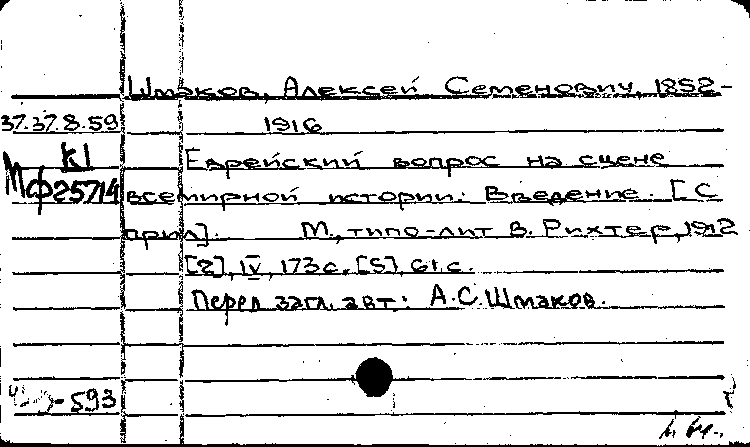 Шмаков, Алексей Семенович, 1852-
37.37.8.59 1916
К1 Еврейский вопрос на сцене
Мф25714 всемирной истории: Введение. [С
прил]. М., типо-лит В. Рихтер, 1912
[2], IV, 173 с. [5], 61 с.
Перед загл. авт: А.С. Шмаков.
-593